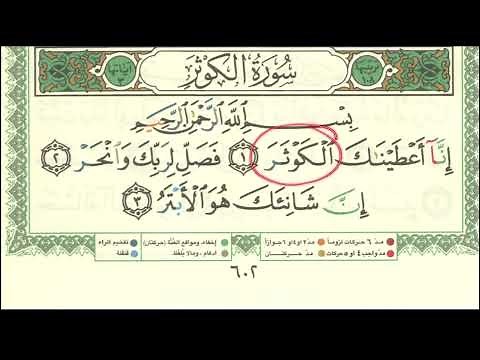 ترتيبها ١٠٨ سُورَةُ الكَوْثَرِ آياتها ٣
بِسْمِ ٱللَّهِ ٱلرَّحْمَٰنِ ٱلرَّحِيمِ
إِنَّآ أَعْطَيْنَاكَ ٱلْكَوْثَرَ ١ فَصَلِّ لِرَبِّكَ وَٱنْحَرْ ٢
إِنَّ شَانِئَكَ هُوَ ٱلْأَبْتَرُ ٣
مدّ ٦ حركات لزوماً مدّ ٢ او ٤ او ٦ جوازاً إخفاء، ومواقع الغُنَّة (حركتان) تفخيم الراء
مدّ واجب ٤ او ٥ حركات مدّ حركتان ادغام، وما لا يُلفَظ قلقلة
٦٠٢